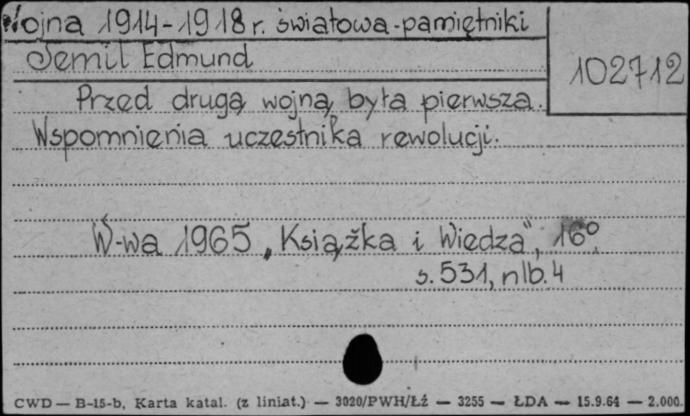 Wojna 1914-1918 r. światowa-pamiętniki
Semil Edmund
102712
Przed drugą wojną była pierwsza.
Wspomnienia uczestnika rewolucji.
W-wa 1965 „Książka i Wiedza", 16°.
s. 531, nlb. 4
CWD — B-15-b, Karta katal. (z liniat.) — 3020/PWH/Łź — 3255 — ŁDA — 15.9.64 — 2.000.